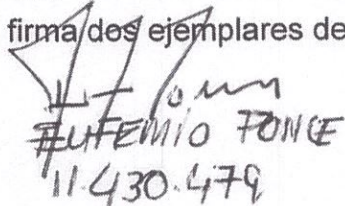 firma dos ejemplares de
EUFEMIO PONCE
11.430.479